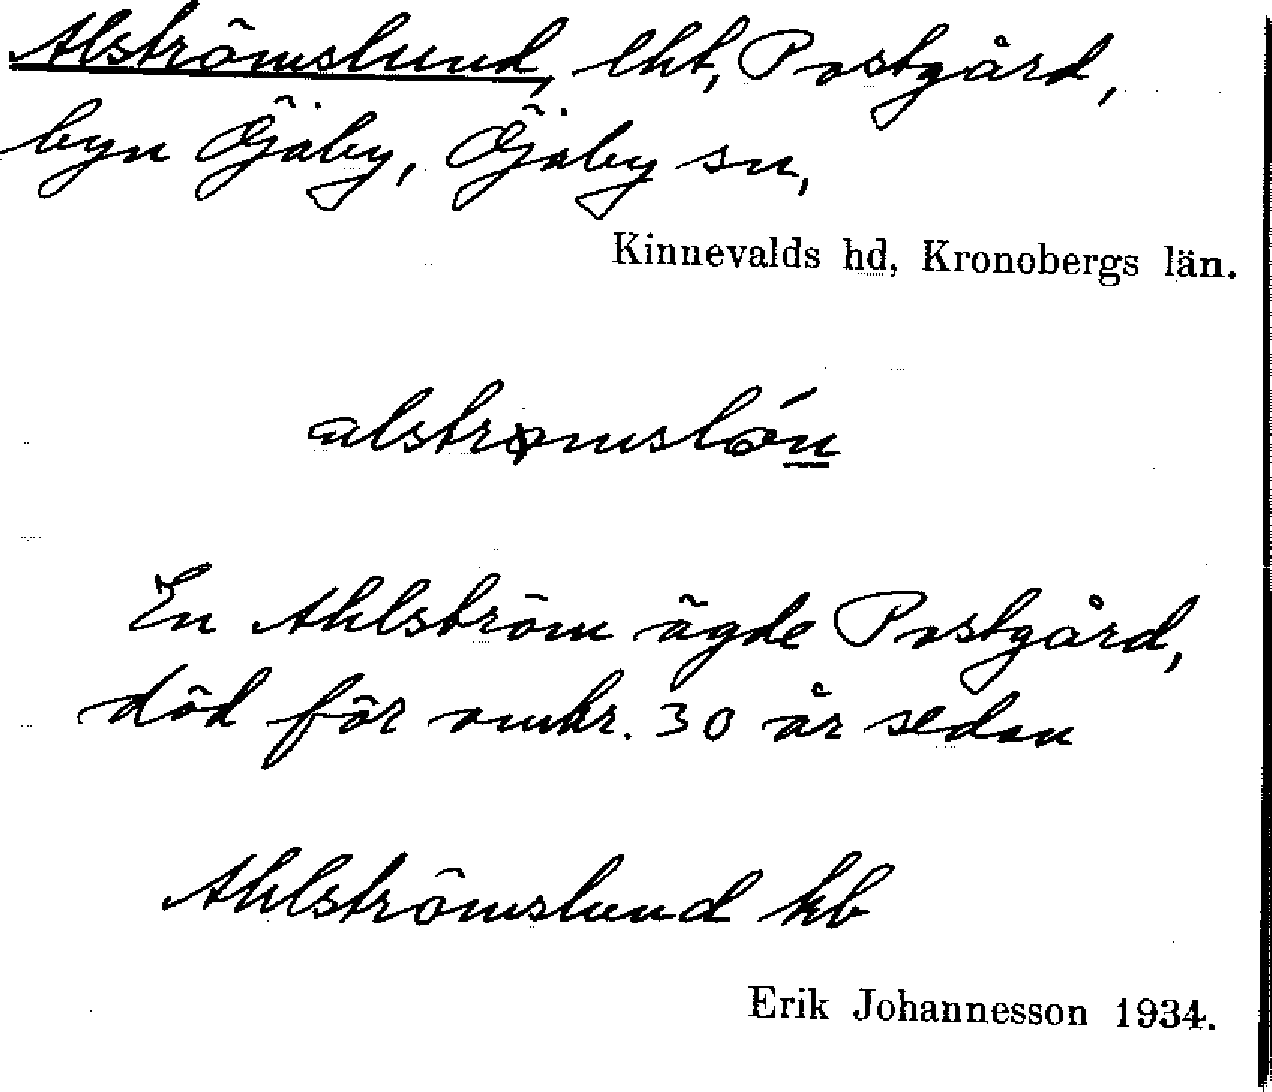 Alströmslund, lht, Postgård,
byn Öjaby, Öjaby sn,
Kinnevalds hd, Kronobergs län.
En Ahlström ägde Postgård,
död för omkr. 30 år sedan
Ahlströmslund kb
Erik Johannesson 1934.